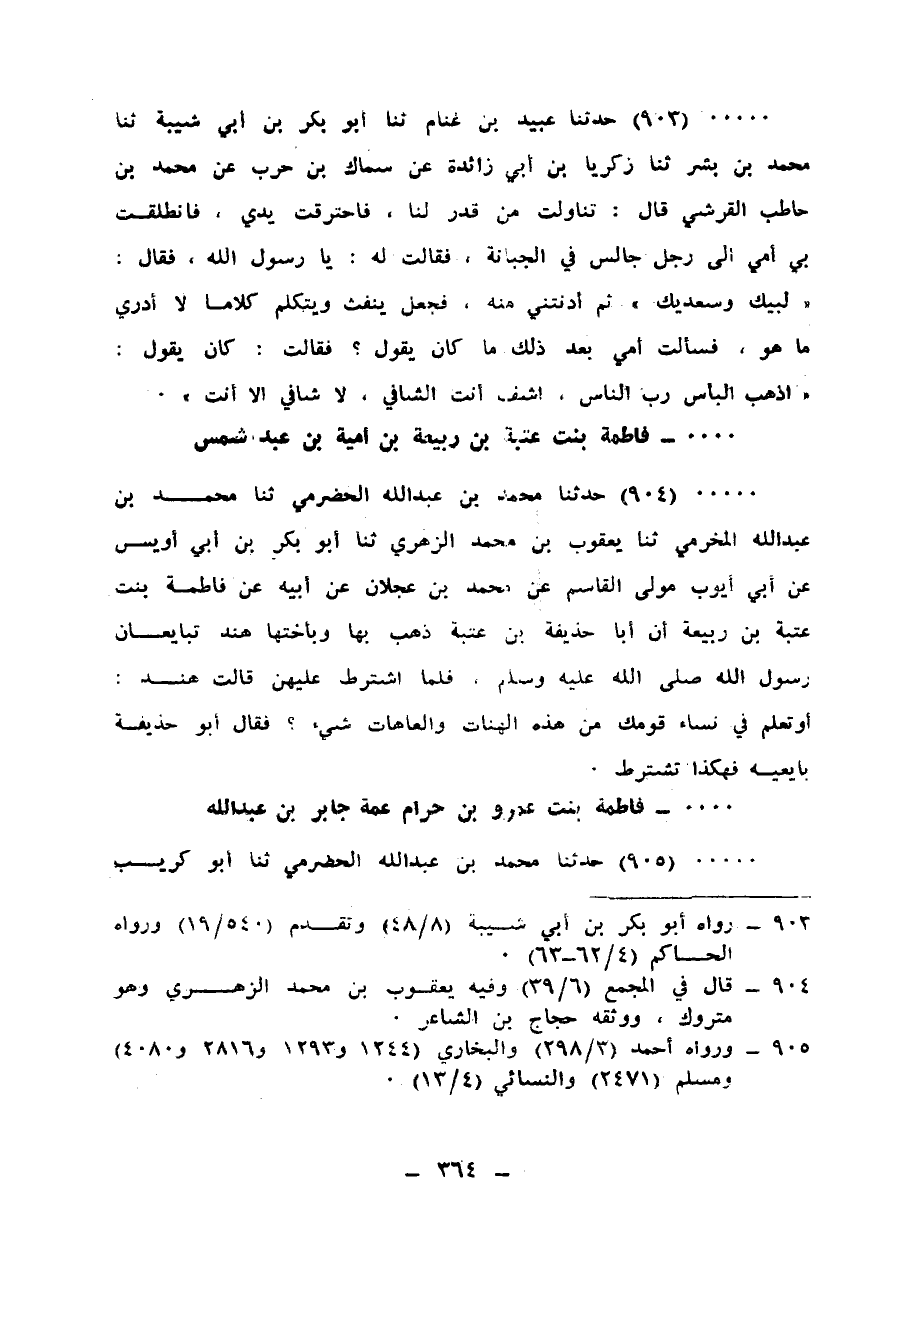 ٠٠٠٠٠ (٩٠٣) حدثنا عبيد بن غنام ثنا أبو بكر بن أبي شيبة ثنا
محمد بن بشر ثنا زكريا بن أبي زائدة عن سماك بن حرب عن محمد بن
حاطب القرشي قال : تناولت من قدر لنا ، فاحترقت يدي ، فانطلقت
بي أمي الى رجل جالس في الجبانة ، فقالت له : يا رسول الله ، فقال :
« لبيك وسعديك » ثم أدنتني منه ، فجعل ينفث ويتكلم كلاما لا أدري
ما هو ، فسألت أمي بعد ذلك ما كان يقول ؟ فقالت : كان يقول :
« اذهب البأس رب الناس ، اشف أنت الشافي ، لا شافي الا أنت » ٠
٠٠٠٠ ــ فاطمة بنت عتبة بن ربيعة بن أمية بن عبد شمس
٠٠٠٠٠ (٩٠٤) حدثنا محمد بن عبدالله الحضرمي ثنا محمــــد بن
عبدالله المخرمي ثنا يعقوب بن محمد الزهري ثنا أبو بكر بن أبي أويس
عن أبي أيوب مولى القاسم عن محمد بن عجلان عن أبيه عن فاطمة بنت
عتبة بن ربيعة أن أبا حذيفة بن عتبة ذهب بها وبأختها هند تبايعــان
رسول الله صلى الله عليه وسلم ، فلما اشترط عليهن قالت هنــد :
أوتعلم في نساء قومك من هذه الهنات والعاهات شيء ؟ فقال أبو حذيفة
بايعيه فهكذا تشترط ٠
٠٠٠٠ ــ فاطمة بنت عمرو بن حرام عمة جابر بن عبدالله
٠٠٠٠٠ (٩٠٥) حدثنا محمد بن عبدالله الحضرمي ثنا أبو كريــب
٩٠٣ ــ رواه أبو بكر بن أبي شــيبة (٤٨/٨) وتقــدم (١٩/٥٤٠) ورواه
الحــاكم (٦٢/٤ــ٦٣) ٠
٩٠٤ ــ قال في المجمع (٣٩/٦) وفيه يعقــوب بن محمد الزهــري وهو
متروك ، ووثقه حجاج بن الشاعر ٠
٩٠٥ ــ ورواه أحمد (٢٩٨/٣) والبخاري (١٢٤٤ و١٢٩٣ و٢٨١٦ و٤٠٨٠)
ومسلم (٢٤٧١) والنسائي (١٣/٤) ٠
ــ ٣٦٤ ــ